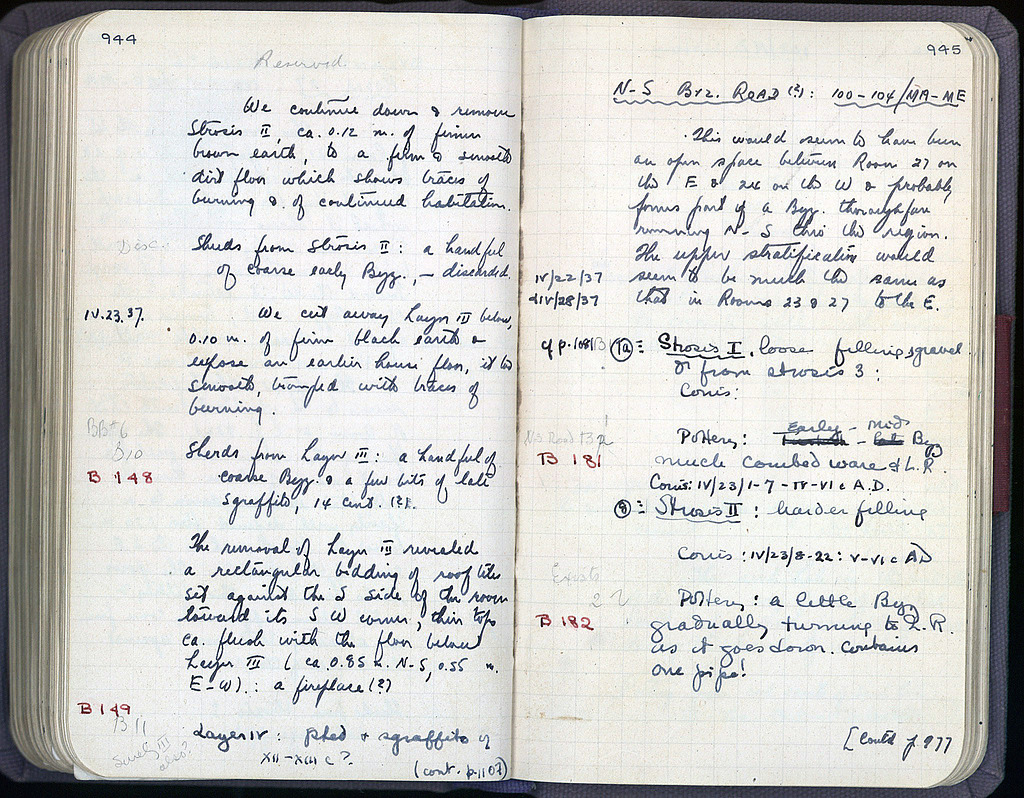 944
Reserved
We continue down & remove
Strosis II, ca. 0.12 m. of firmer
brown earth, to a firm & smooth
dirt floor which shows traces of
burning & of continued habitation.
Disc.
Sherds from Strosis II : a handful
of coarse early Byz., – discarded
IV.23.37.
We cut away Layer III below,
0.10 m. of firm black earth &
expose an earlier house floor, it too
smooth, tramped with traces of
burning.
BB#6
B10
B 148
Sherds from Layer III : a handful of
coarse Byz. & a few bits of late
sgraffito, 14 cent. (?).
The removal of Layer III revealed
a rectangular bedding of roof tiles
set against the S side of the room
toward its S W corner, their tops
ca. flush with the floor below
Layer III ( ca. 0.85 m. N-S, 0.55 m.
E-W). : a fireplace (?)
B 149
B 11
Surely III
also?
Layer IV : & sgraffito of
XII - XIII c ?.
(cont. p. 1107)
945
N-S Byz. Road (?) : 100-104/MA-ME
This would seem to have been
an open space between Room 27 on
the E & 24 on the W & probably
forms part of a Byz. thoroughfare
running N-S thro the region.
The upper stratification would
seem to be much the same as
that in Rooms 23 & 27 to the E.
IV/22/37
& IV/28/37
cf p. 1081
(7a) : Strosis I, loose filling, gravel
from strosis 3 :
Coins:
Early - mod
Pottery: Byz
N-S Road
B 181
much combed ware & L.R.
Coins: IV/23/1-7 - IV-VI c A.D.
(8) : Strosis II : harder filling
Coins : IV/23/8-22 : V-VI c AD
Exists
2
Pottery : a little Byz,
B 182
gradually turning to L.R.
as it goes down. Contains
one pipe!
[Contd p. 977